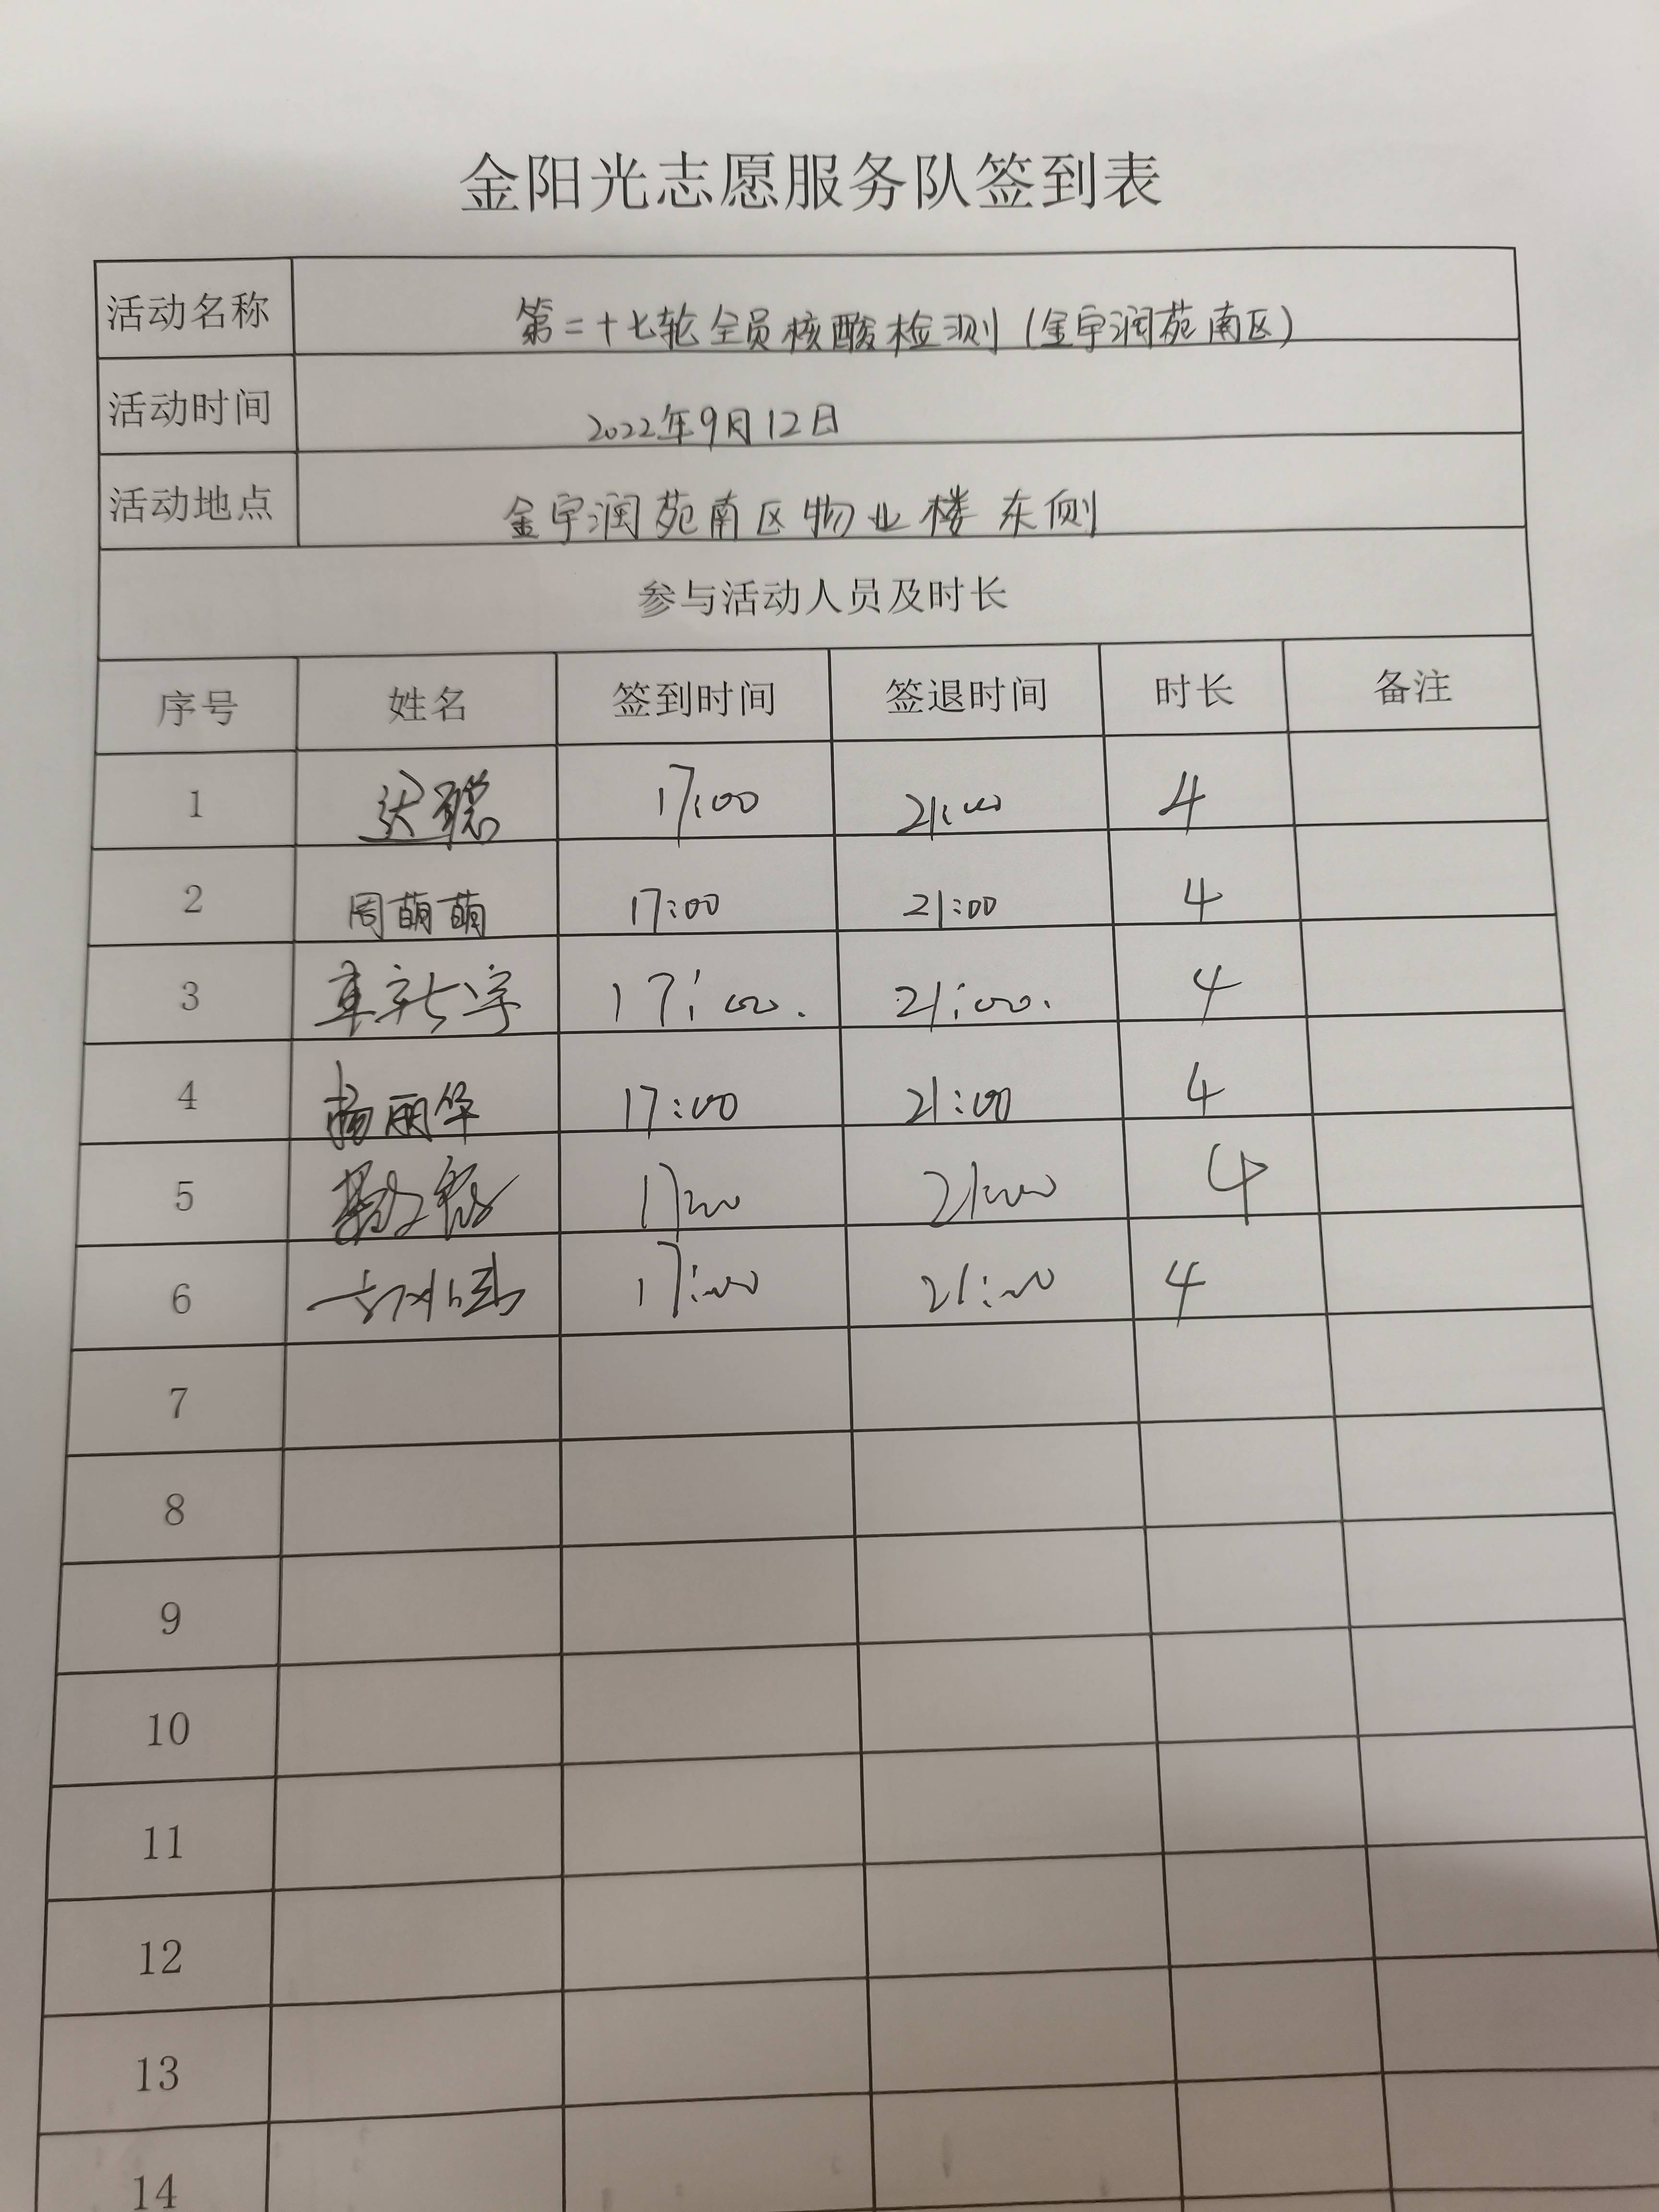 金阳光志愿服务队签到表
活动名称 第二十七轮全员核酸检测(金宇润苑南区)
活动时间 2022年9月12日
活动地点 金宇润苑南区物业楼东侧
参与活动人员及时长
序号 姓名 签到时间 签退时间 时长 备注
1 达聪 17:00 21:00 4
2 周萌萌 17:00 21:00 4
3 17:00. 21:00. 4
4 杨丽华 17:00 21:00 4
5 17:00 21:00 4
6 17:00 21:00 4
7
8
9
10
11
12
13
14